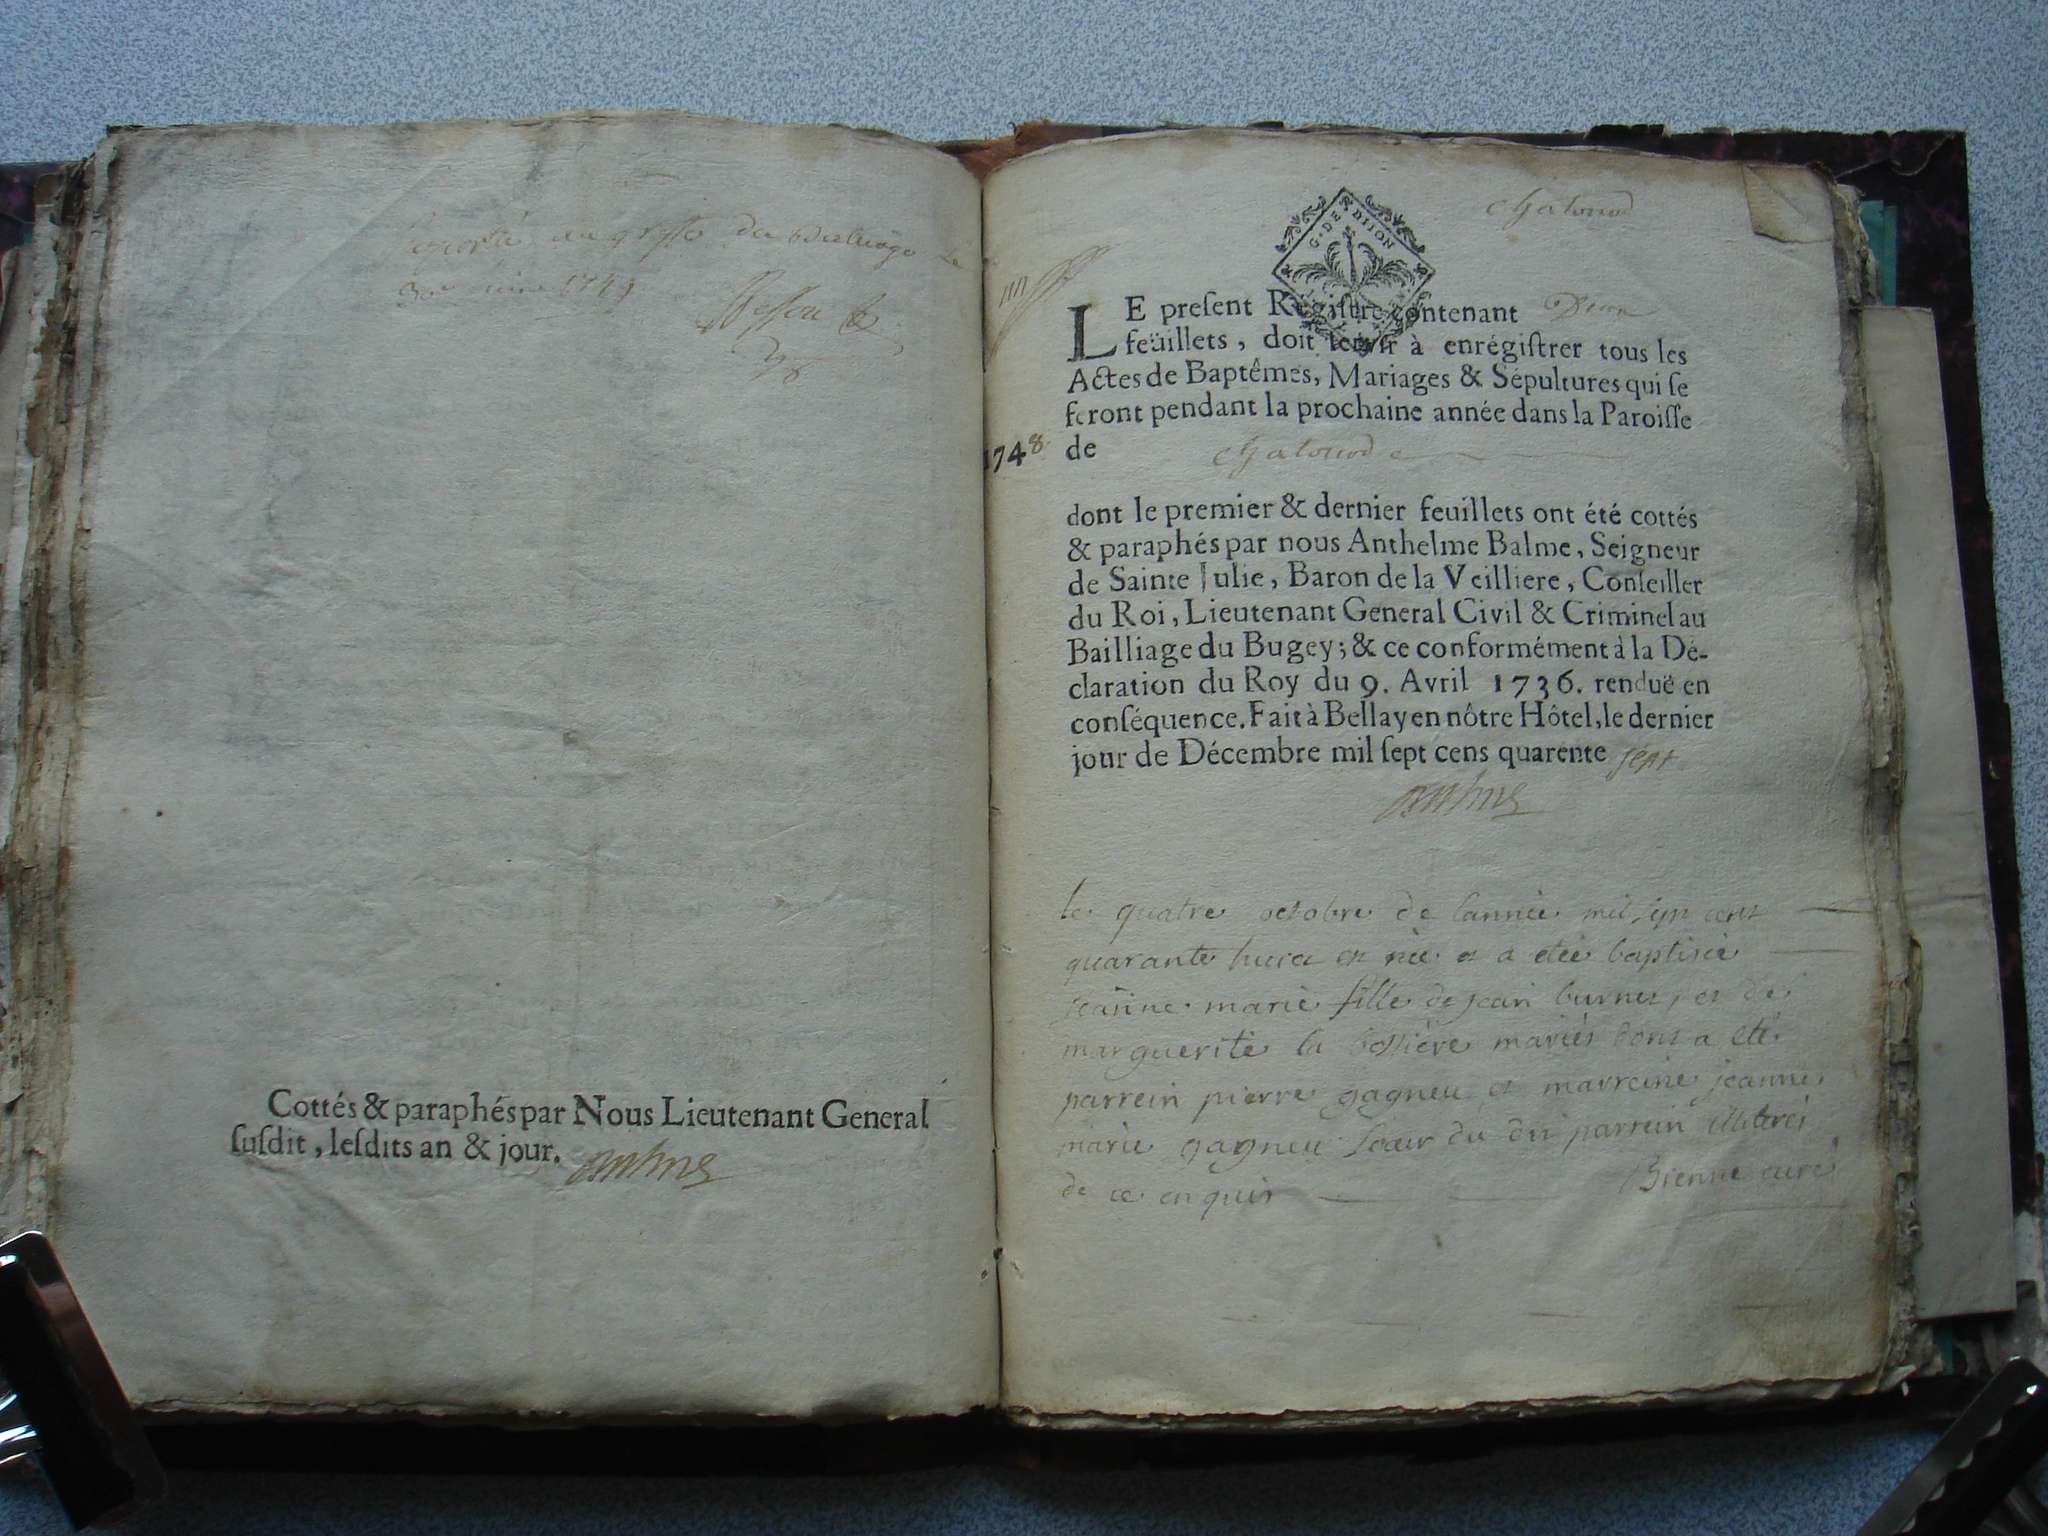 au greffe du Bailliage le
30e juin 1749
Cottés & paraphés par Nous Lieutenant General
suſdit, leſdits an & jour.
chatonod
G. DE DIJON
LE preſent Regiſtre contenant Deux
feüillets, doit ſervir à enrégiſtrer tous les
Actes de Baptêmes, Mariages & Sépultures qui ſe
feront pendant la prochaine année dans la Paroiſſe
1748
de chatonod
dont le premier & dernier feuillets ont été cottés
& paraphés par nous Anthelme Balme, Seigneur
de Sainte Julie, Baron de la Veilliere, Conſeiller
du Roi, Lieutenant General Civil & Criminel au
Bailliage du Bugey; & ce conformément à la Dé-
claration du Roy du 9. Avril 1736. renduë en
conſéquence. Fait à Bellay en nôtre Hôtel, le dernier
jour de Décembre mil ſept cens quarente ſept
le quatre octobre de lannée mil sept cent
quarante huict est née et a etée baptisée
jeanne marie fille de jean burnet, et de
marguerite la bossiere mariés dont a eté
parrein pierre gagneu et marreine jeanne
marie gagneu sœur du dit parrein
de ce enquis Bienne curé